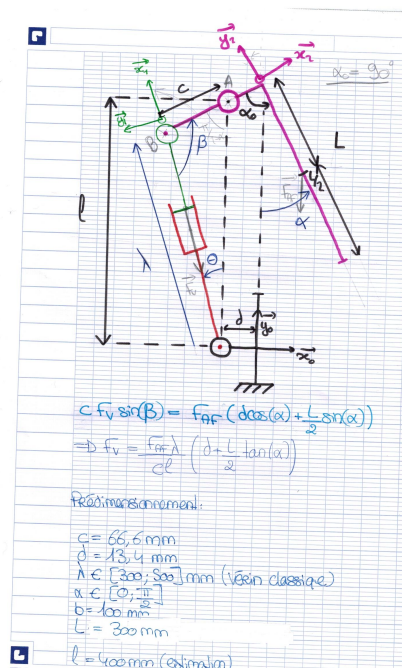 y₂
x₂
α₀ = 90°
x₁
c
A
α₀
y₁
B
β
L
l
λ
L/2
F_AF
α
θ
F_V
d
y₀
x₀
c F_V sin(β) = F_AF (d cos(α) + L/2 sin(α))
⇒ F_V = F_AF λ / cl (d + L/2 tan(α))
Prédimensionnement:
c = 66,6 mm
d = 13,4 mm
λ ∈ [300; 500] mm (Vérin classique)
α ∈ [0; π/2]
b = 100 mm
L = 300 mm
l = 400 mm (estimation)